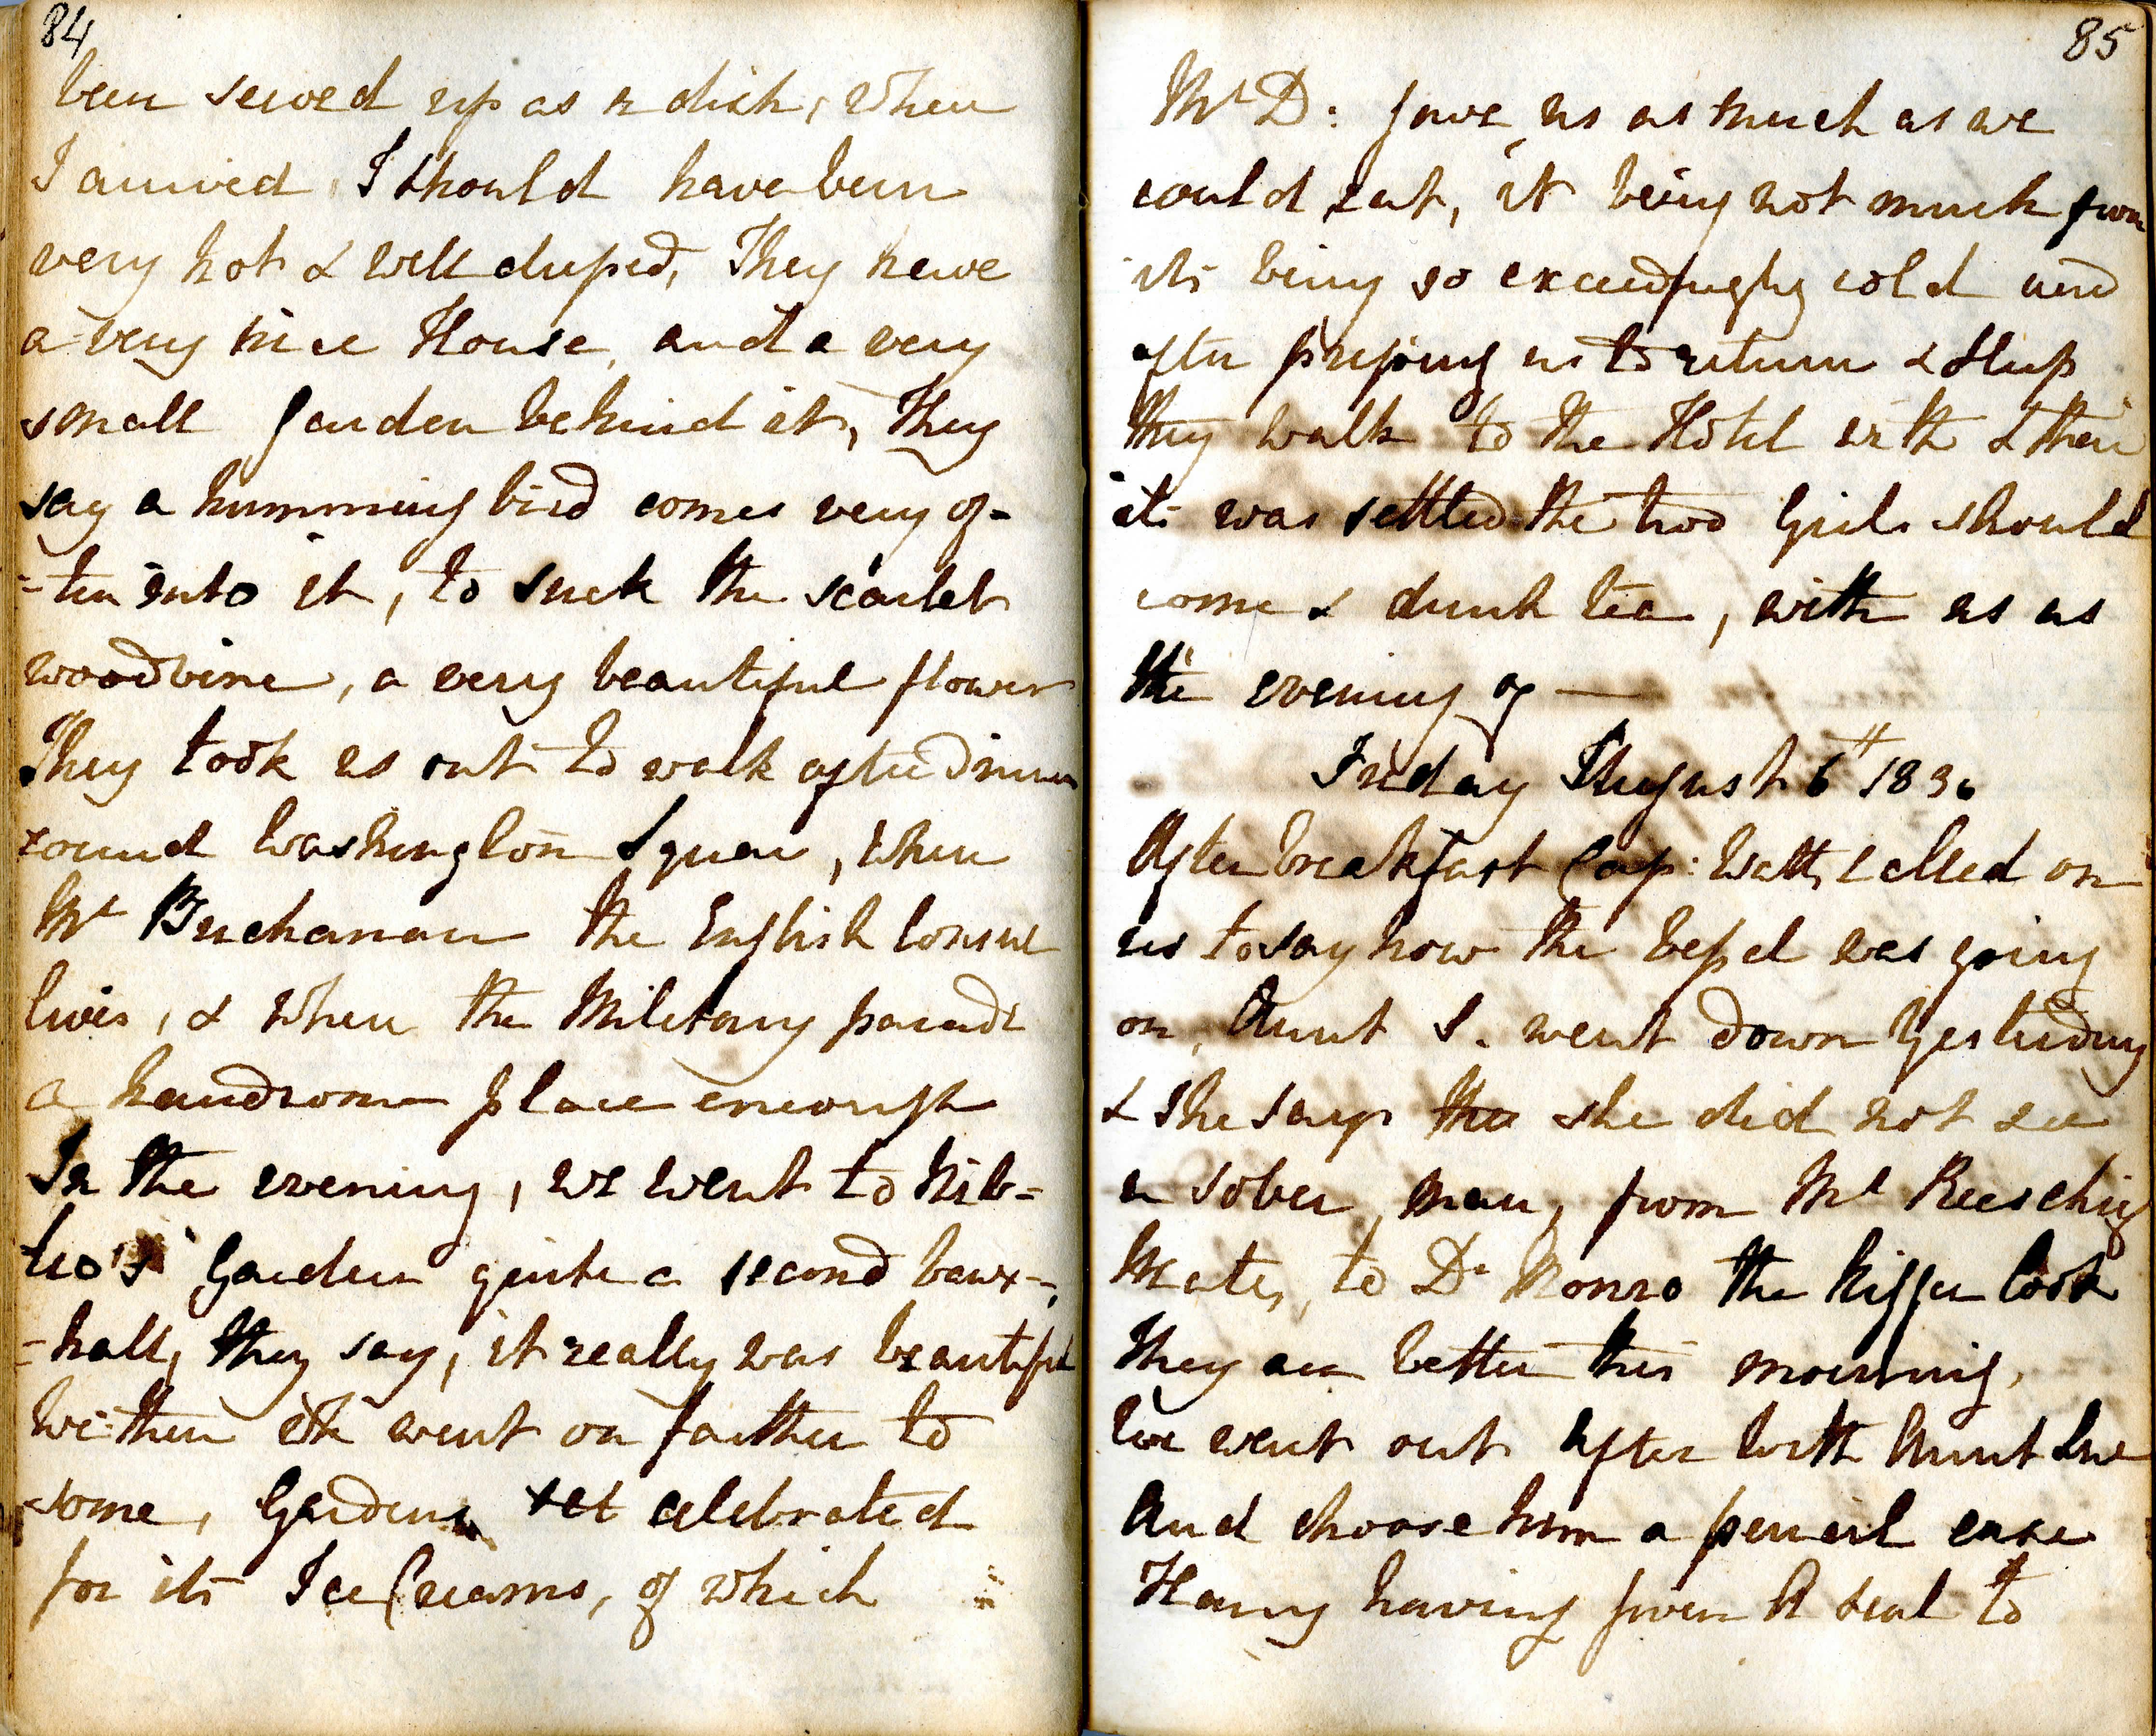 84
been served up as a dish, when
I arrived, I should have been
very hot & well dressed, They have
a very nice House, and a very
small garden behind it, They
say a humming bird comes very of-
-ten into it, to suck the scarlet
woodvine, a very beautiful flower
They took us out to walk after dinner
round Washington Square, where
Mr Buchanan the English Consul
lives, & where the Military parade
a handsome place enough
In the evening, we went to Nib-
lo's Garden quite a second Vaux-
-hall, they say, it really was beautiful
We then went on farther to
some, Gardens celebrated
for its Ice Creams, of which
85
Mr D: gave us as much as we
could eat, it being not much from
its being so exceedingly cold and
after pressing us to return & Sup
they walk to the Hotel with & then
it was settled the two Girls should
come & drink tea, with us as
the evening of —
Friday August 6th 1836
After breakfast Cap: Watts called on
us to say how the Vessel was going
on, Aunt S. went down Yesterday
& She says she did not see
a sober man, from Mr
Mate, to Dr Monro the Nigger Cook
They are better this morning,
We went out after with Aunt
And choose him a pencil case
Harry having given A seal to